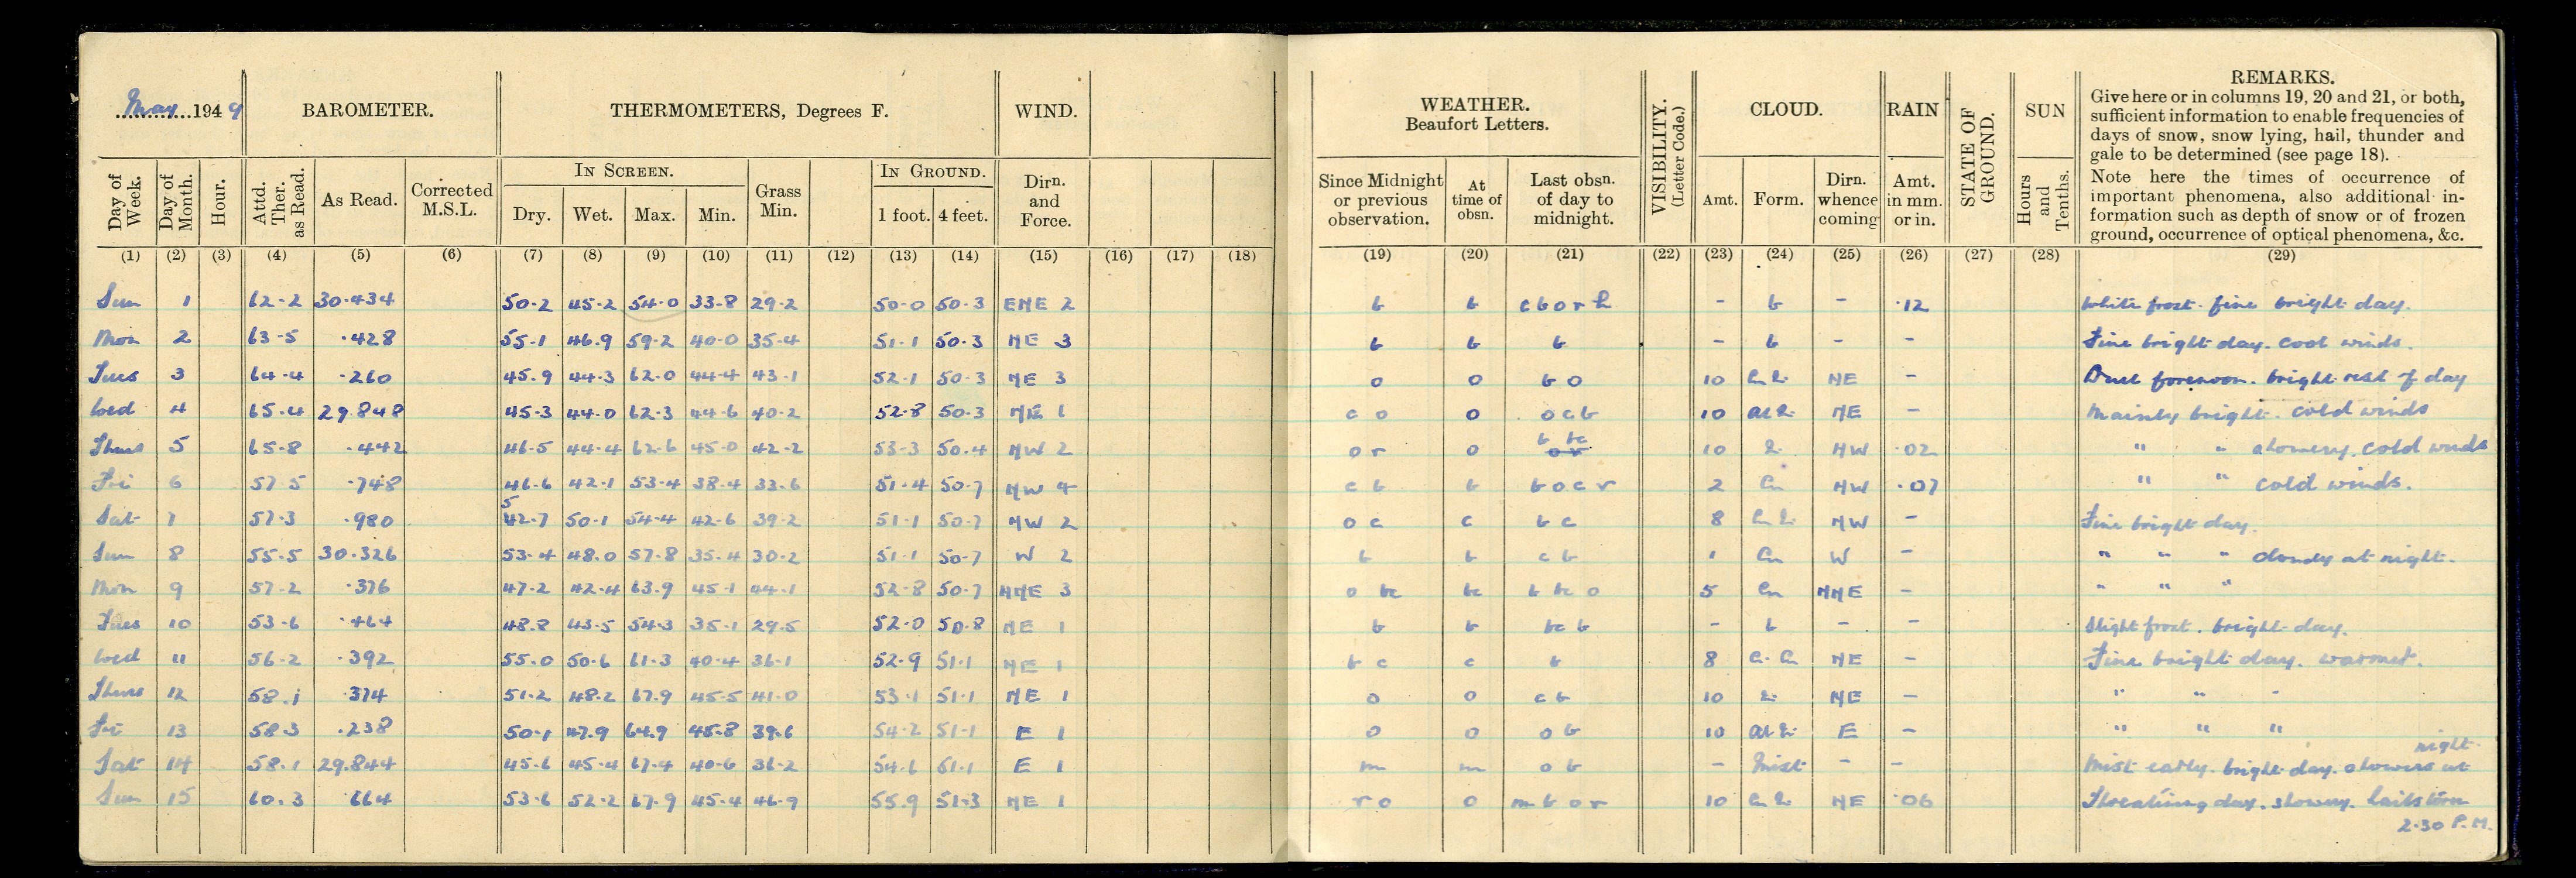 May 1949 BAROMETER. THERMOMETERS, Degrees F. WIND. WEATHER. Beaufort Letters. VISIBILITY. (Letter Code.) CLOUD. RAIN STATE OF GROUND. SUN REMARKS.
Give here or in columns 19, 20 and 21, or both,
sufficient information to enable frequencies of
days of snow, snow lying, hail, thunder and
gale to be determined (see page 18).
Note here the times of occurrence of
important phenomena, also additional in-
formation such as depth of snow or of frozen
ground, occurrence of optical phenomena, &c.
IN SCREEN. IN GROUND.
Day of Week. Day of Month. Hour. Attd. Ther. as Read. As Read. Corrected M.S.L. Dry. Wet. Max. Min. Grass Min. 1 foot. 4 feet. Dirn. and Force. Since Midnight or previous observation. At time of obsn. Last obsn. of day to midnight. Amt. Form. Dirn. whence coming Amt. in mm. or in. Hours and Tenths.
(1) (2) (3) (4) (5) (6) (7) (8) (9) (10) (11) (12) (13) (14) (15) (16) (17) (18) (19) (20) (21) (22) (23) (24) (25) (26) (27) (28) (29)
Sun 1 62.2 30.434 50.2 45.2 54.0 33.8 29.2 50.0 50.3 ENE 2 b b c b o r h - b - .12 White frost. fine bright day.
Mon 2 63.5 .428 55.1 46.9 59.2 40.0 35.4 51.1 50.3 NE 3 b b b - b - - Fine bright day. cool winds.
Tues 3 64.4 .260 45.9 44.3 62.0 44.4 43.1 52.1 50.3 NE 3 o o b o 10 NE - Dull forenoon. bright rest of day
Wed 4 65.4 29.848 45.3 44.0 62.3 44.6 40.2 52.8 50.3 NE 1 c o o o c b 10 NE - Mainly bright. cold winds
Thurs 5 65.8 .442 46.5 44.4 62.6 45.0 42.2 53.3 50.4 NW 2 o r o b bc o r 10 NW .02 " " showery. cold winds
Fri 6 57.5 .748 46.6 42.1 53.4 38.4 33.6 51.4 50.7 NW 4 c b b b o c r 2 Cu NW .07 " " cold winds.
Sat 7 57.3 .980 52.7 50.1 54.4 42.6 39.2 51.1 50.7 NW 2 o c c b c 8 NW - Fine bright day.
Sun 8 55.5 30.326 53.4 48.0 57.8 35.4 30.2 51.1 50.7 W 2 b b c b 1 Cu W - " " " cloudy at night.
Mon 9 57.2 .376 47.2 42.4 63.9 45.1 44.1 52.8 50.7 NNE 3 o bc bc b bc o 5 Cu NNE - " " "
Tues 10 53.6 .464 48.8 43.5 54.3 35.1 29.5 52.0 50.8 NE 1 b b bc b - b - - Slight frost. bright day.
Wed 11 56.2 .392 55.0 50.6 61.3 40.4 36.1 52.9 51.1 NE 1 b c c b 8 NE - Fine bright day. warmer.
Thurs 12 58.1 .374 51.2 48.2 67.9 45.5 41.0 53.1 51.1 NE 1 o o c b 10 NE - " " "
Fri 13 58.3 .238 50.1 47.9 64.9 45.8 39.6 54.2 51.1 E 1 o o o b 10 E - " " "
Sat 14 58.1 29.844 45.6 45.4 67.4 40.6 36.2 54.6 51.1 E 1 m m o b - Mist - - Mist early. bright day. showers at night.
Sun 15 60.3 664 53.6 52.2 67.9 45.4 46.9 55.9 51.3 NE 1 r o o m b o r 10 NE .06 Threatning day. showery. hailstorm
2.30 P.M.